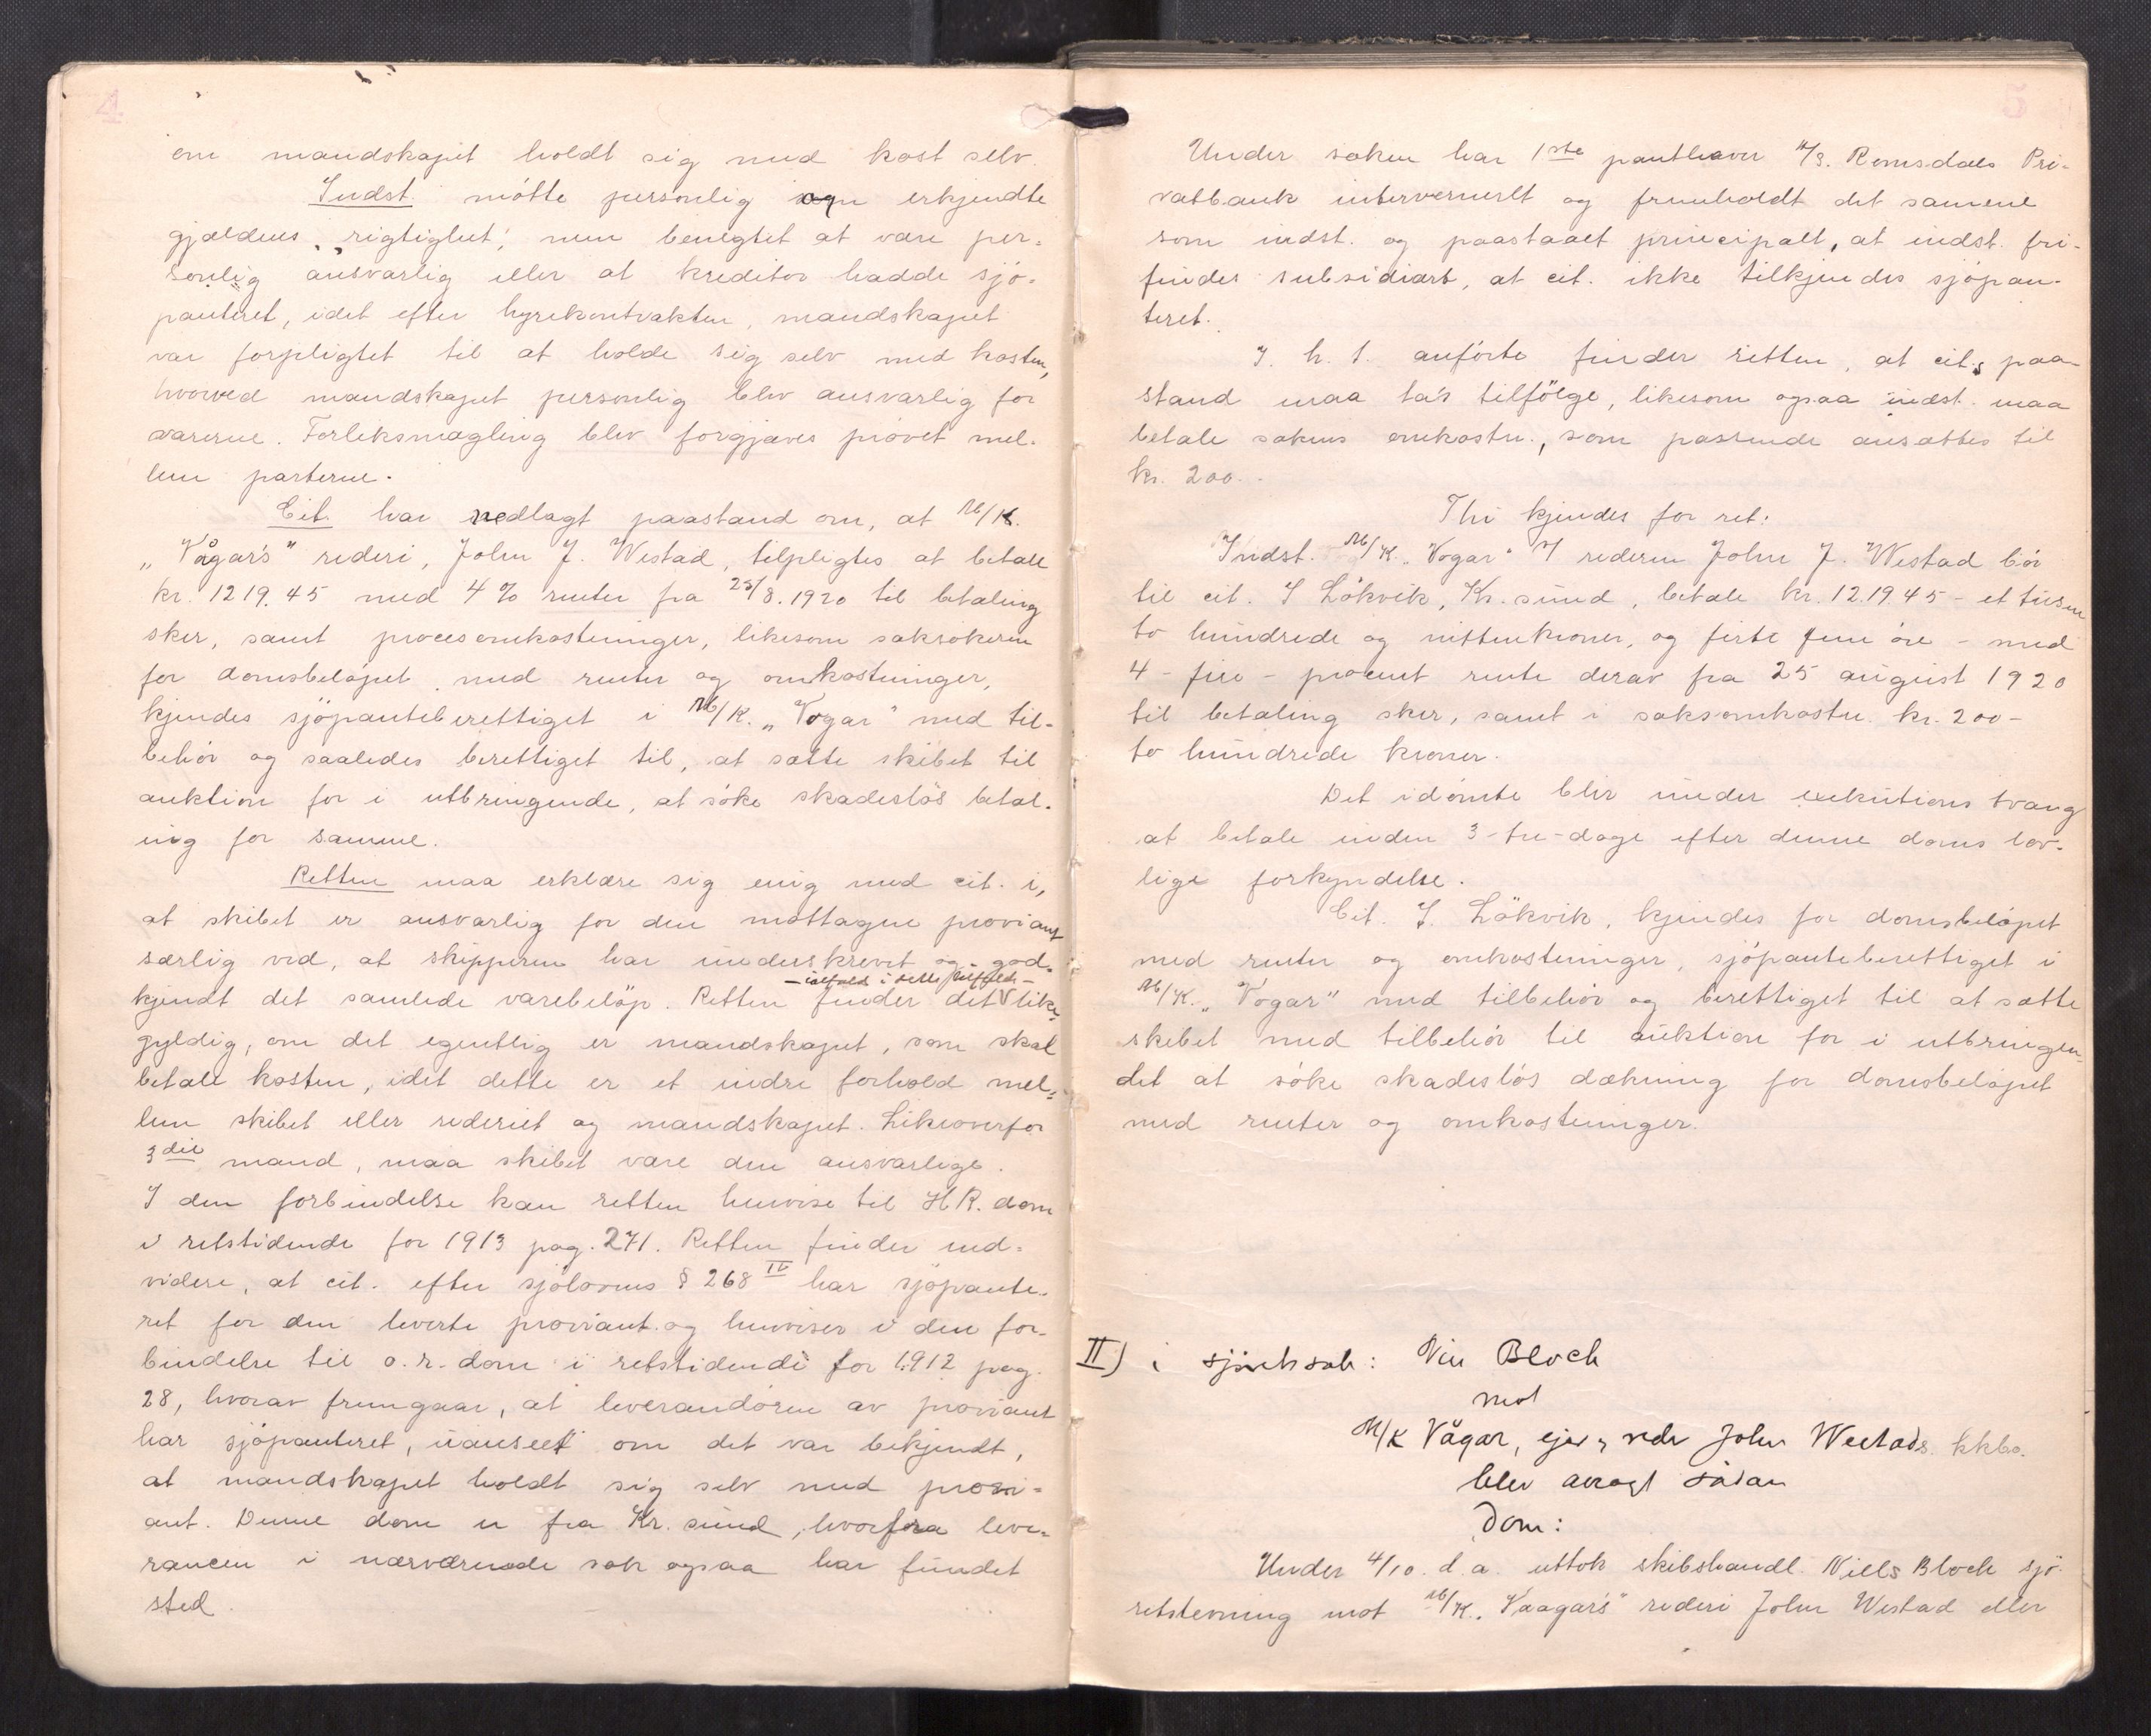 4
om mandskapet holdt sig med kost selv.
Indst. møtte personlig og erkjendte
gjældens rigtighet, men benegtet at være per-
sonlig ansvarlig eller at kreditor hadde sjø-
panteret, idet efter hyrekontrakten, mandskapet
var forpligtet til at holde sig selv med kosten,
hvorved mandskapet personlig blev ansvarlig for
varerne. Forliksmægling blev forgjæves prøvet mel-
lem parterne.
Cit. har nedlagt paastand om, at M/K.
„Vågar's" rederi, John J. Westad, tilpligtes at betale
kr. 1219.45 med 4 % renter fra 25/8.1920 til betaling
sker, samt procesomkostninger, likesom saksøkeren
for domsbeløpet med renter og omkostninger,
kjendes sjøpanteberettiget i M/K. „Vogar" med til-
behør og saaledes berettiget til, at sætte skibet til
auktion for i utbringende, at søke skadesløs betal-
ing for samme.
Retten maa erklære sig enig med cit. i,
at skibet er ansvarlig for den mottagne proviant
særlig ved, at skipperen har underskrevet og god-
- ialfald i dette tilfælde -
kjendt det samlede varebeløp. Retten finder det V like-
gyldig, om det egentlig er mandskapet, som skal
betale kosten, idet dette er et indre forhold mel-
lem skibet eller rederiet og mandskapet. Likeoverfor
3die mand, maa skibet være den ansvarlige.
I den forbindelse kan retten henvise til H.R. dom
i retstidende for 1913 pag. 271. Retten finder end-
videre, at cit. efter sjølovens § 268 IV har sjøpante-
ret for den leverte proviant og henviser i den for-
bindelse til o.r. dom i retstidende for 1912 pag.
28, hvorav fremgaar, at leverandøren av proviant
har sjøpanteret, uanseet om det var bekjendt,
at mandskapet holdt sig selv med provi-
ant. Denne dom er fra Kr. sund, hvorfra leve-
rancen i nærværende sak ogsaa har fundet
sted.
5
Under saken har 1ste panthaver A/S. Romsdals Pri-
vatbank intervenerlt og fremholdt det samme
som indst. og paastaaet principalt, at indst. fri-
findes subsidiært, at cit. ikke tilkjendes sjøpan-
teret.
I. h. t. anførte finder retten, at cit.s paa-
stand maa ta's tilfølge, likesom ogsaa indst. maa
betale sakens omkostn., som passende ansættes til
kr. 200.-
Thi kjendes for ret:
Indst. M/K. „Vogar" V rederen John J. Westad bør
til cit. I Løkvik, Kr. sund, betale kr. 1219.45 - et tusen
to hundrede og nittenkroner, og førti fem øre - med
4 - fire - procent rente derav fra 25 august 1920
til betaling sker, samt i saksomkostn. kr. 200 -
to hundrede kroner.
Det idømte blir under exekutions tvang
at betale inden 3 - tre - dage efter denne doms lov-
lige forkyndelse.
Cit. J. Løkvik, kjendes for domsbeløpet
med renter og omkostninger, sjøpanteberettiget i
M/K. „Vogar" med tilbehør og berettiget til at sætte
skibet med tilbehør til auktion for i utbringen-
det at søke skadesløs dækning for domsbeløpet
med renter og omkostninger.
II) i sjøretssak: Bloch
mot
M/K Vågar, ejer, reder John Westads
blev avsagt sådan
Dom:
Under 4/10. d.a. uttok skibshandl. Niels Bloch sjø-
retstevning mot M/K. „Vaagar's" rederi John Westad eller